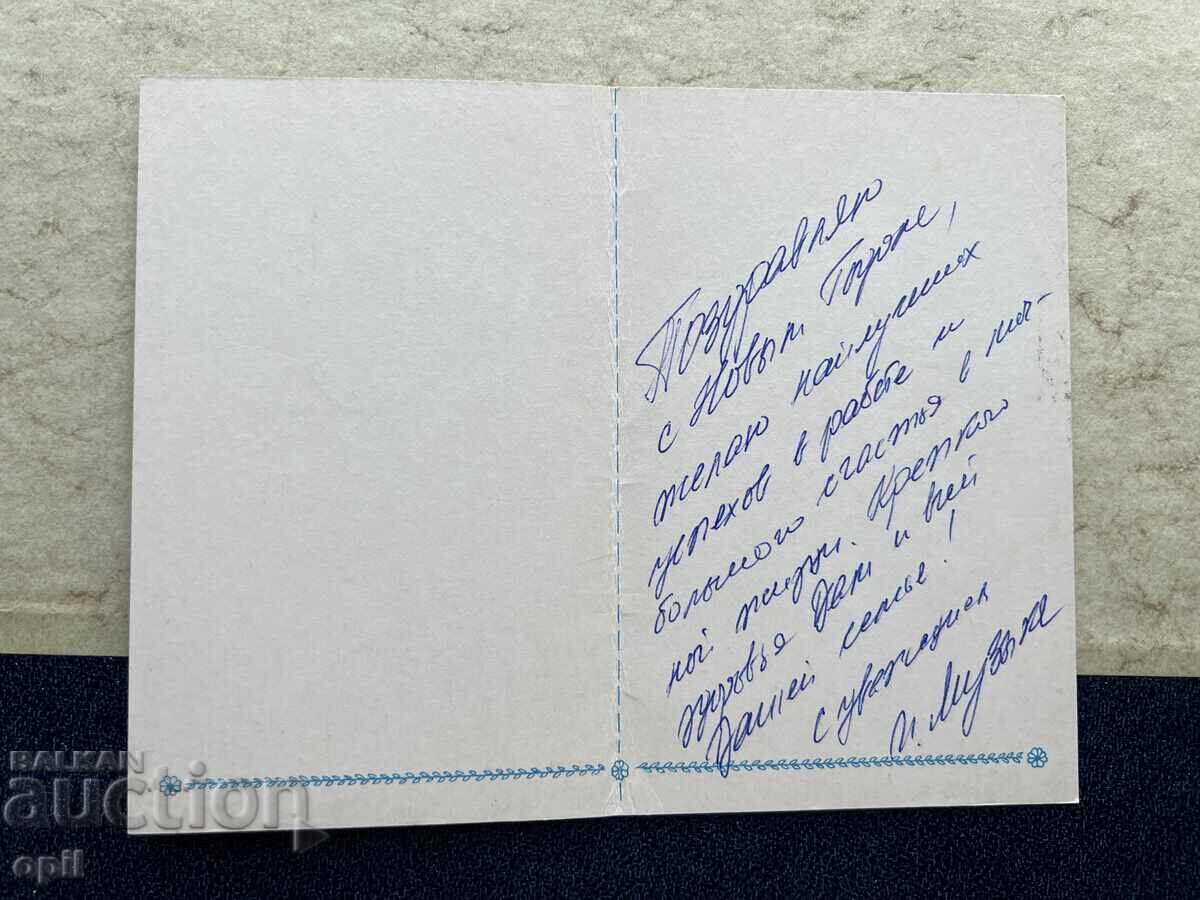 Поздравляю
с Новым Годом,
желаю наилучших
успехов в работе и
большого счастья в лич-
ной жизни. Крепкого
здоровья Вам и всей
Вашей семье!
с уважением
BALKAN
auction
opil